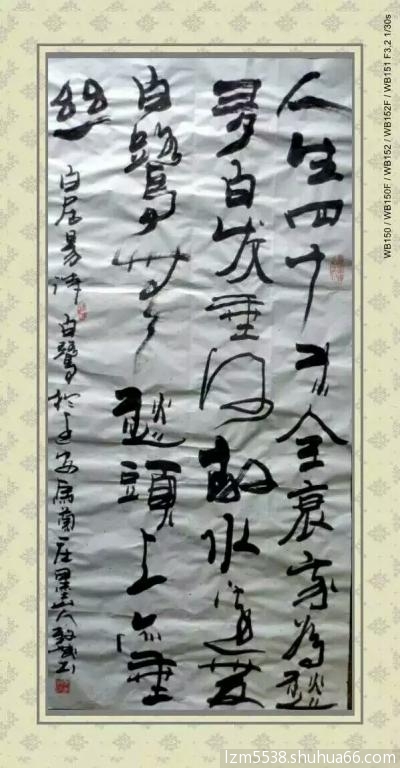 人生四十未全衰我為愁
多白发垂何故水邊雙
白鷺無愁頭上亦垂
絲
白居易詩白鷺於迁安馬蘭庄墨山人
WB150 / WB150F / WB152 / WB152F / WB151 F3.2 1/30s
lzm5538.shuhua66.com